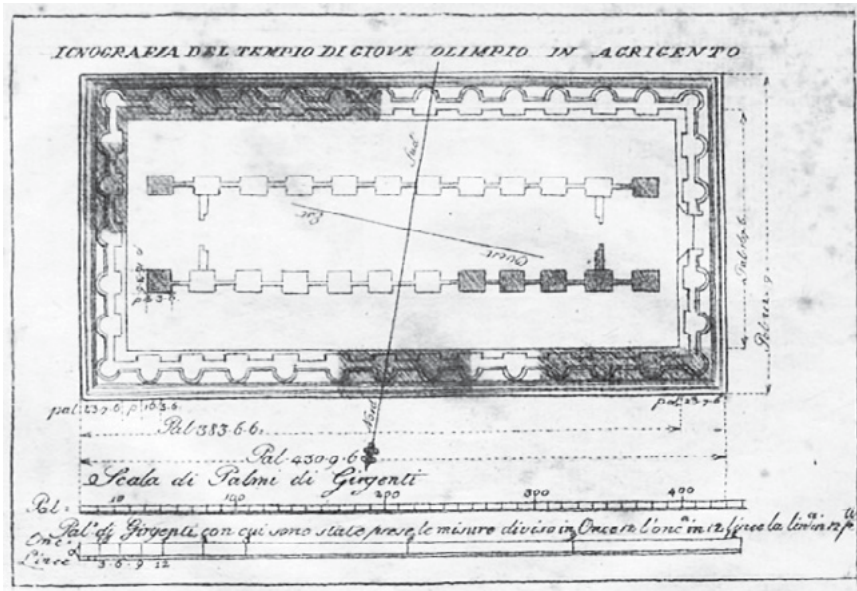 ICNOGRAFIA DEL TEMPIO DI GIOVE OLIMPIO IN AGRIGENTO
Sud
Est
Ovest
Nord
Pal. 212. 9.
pal. 23. 7. 6.
pal. 23. 7. 6.
Pal 383. 6. 6.
Pal 430. 9. 6
Scala di Palmi di Girgenti
Pal. 10 100 200 300 400
Pal. di Girgenti con cui sono state prese le misure diviso in Once 12 l'onc.a in 12 linee la lin.a in 12
Onc
Linee 3 6 9 12